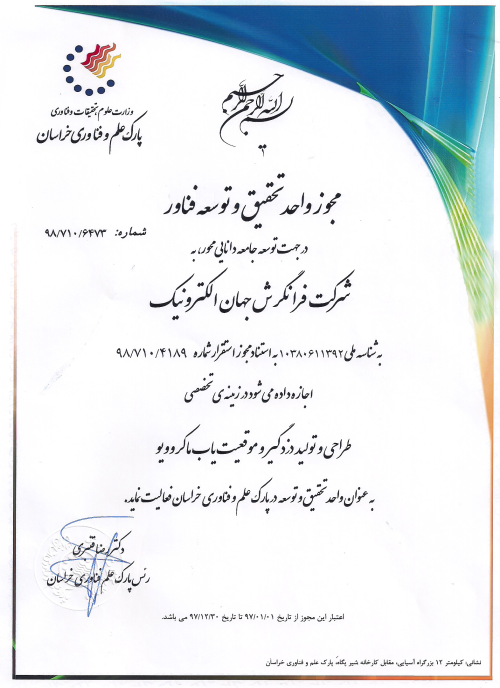 بسم الله الرحمن الرحیم
وزارت علوم، تحقیقات و فناوری
پارک علم و فناوری خراسان
مجوز واحد تحقیق و توسعه فناور
شماره: ۹۸/۷۱۰/۶۴۷۳
در جهت توسعه جامعه دانایی محور، به
شرکت فرانگرش جهان الکترونیک
به شناسه ملی ۱۰۳۸۰۶۱۱۳۹۲ به استناد مجوز استقرار شماره ۹۸/۷۱۰/۴۱۸۹
اجازه داده می شود در زمینه ی تخصصی
طراحی و تولید دزدگیر و موقعیت یاب ماکروویو
به عنوان واحد تحقیق و توسعه در پارک علم و فناوری خراسان فعالیت نماید.
دکتر رضا قنبری
رئس پارک علم و فناوری خراسان
اعتبار این مجوز از تاریخ ۹۷/۰۱/۰۱ تا تاریخ ۹۷/۱۲/۳۰ می باشد.
نشانی: کیلومتر ۱۲ بزرگراه آسیایی، مقابل کارخانه شیر پگاه، پارک علم و فناوری خراسان